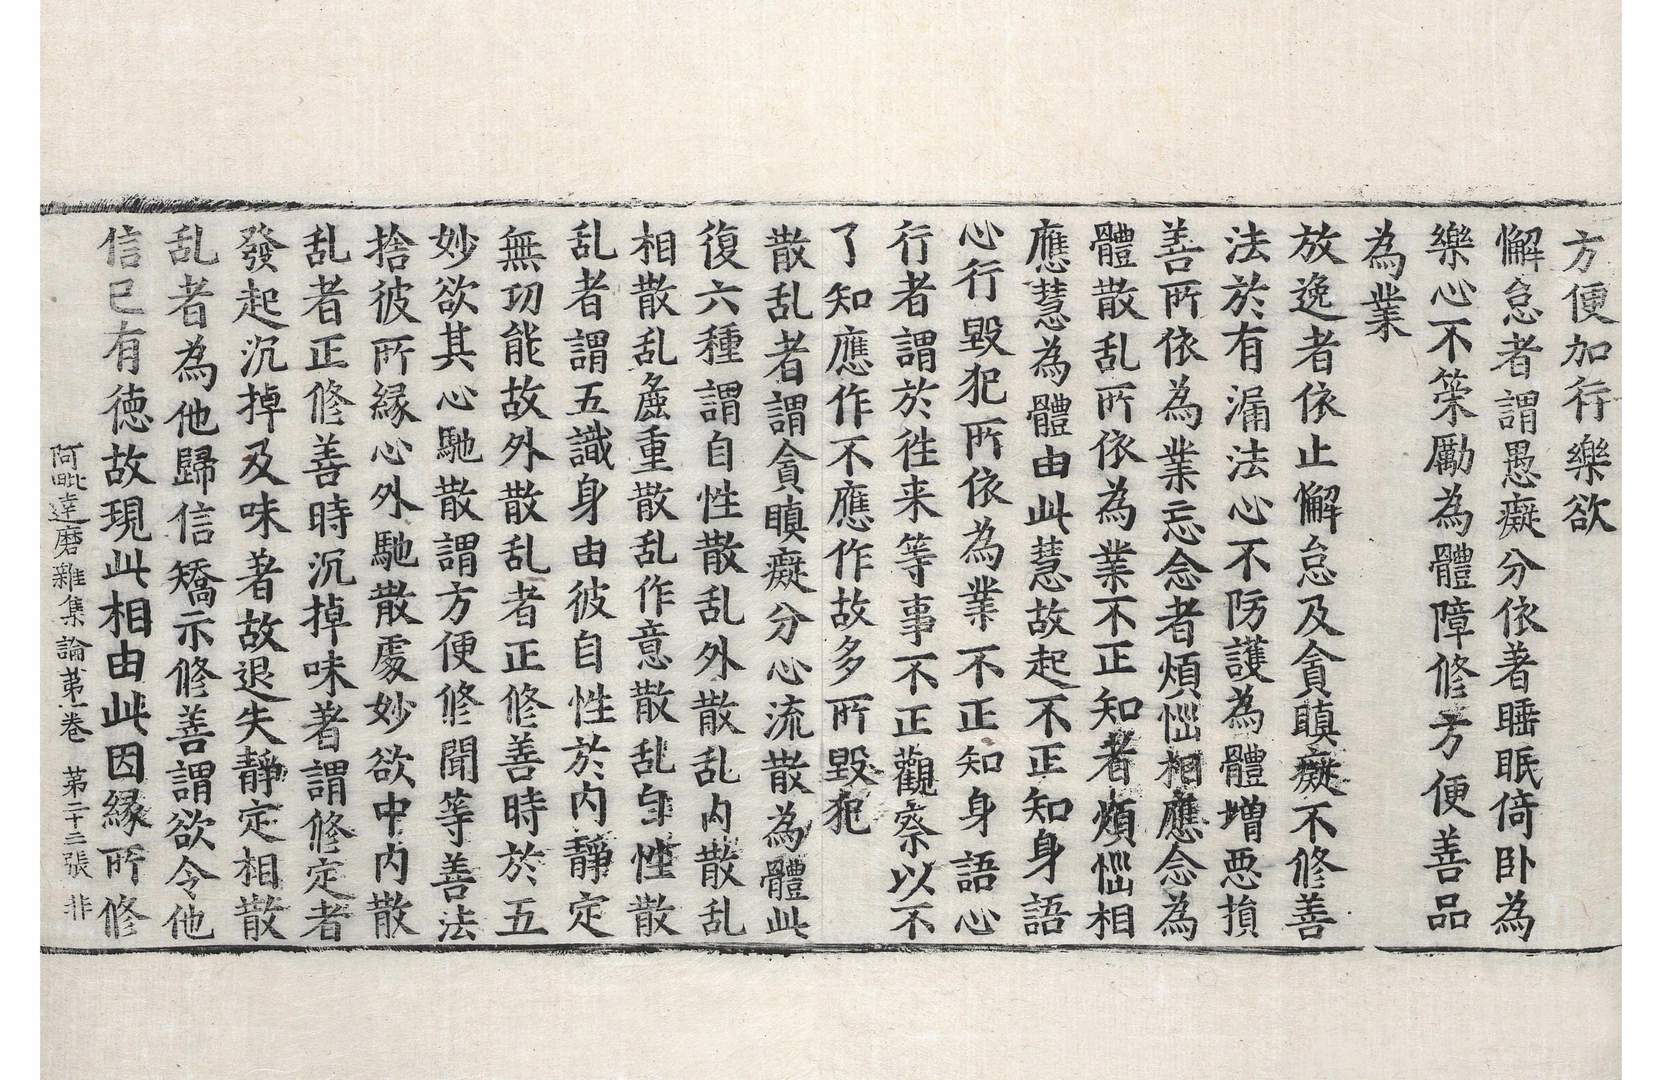 方便加行樂欲
懈怠者謂愚癡分依著睡眠倚卧為
樂心不䇿勵為體障修方便善品
為業
放逸者依止懈怠及貪瞋癡不修善
法於有漏法心不防護為體增惡損
善所依為業忘念者煩惱相應念為
體散乱所依為業不正知者煩惱相
應慧為體由此慧故起不正知身語
心行毀犯所依為業不正知身語心
行者謂於徃来等事不正觀察以不
了知應作不應作故多所毀犯
散乱者謂貪瞋癡分心流散為體此
復六種謂自性散乱外散乱內散乱
相散乱麁重散乱作意散乱自性散
乱者謂五識身由彼自性於內靜定
無功能故外散乱者正修善時於五
妙欲其心馳散謂方便修聞等善法
捨彼所縁心外馳散處妙欲中內散
乱者正修善時沉掉味著謂修定者
發起沉掉及味著故退失靜定相散
乱者為他歸信矯示修善謂欲令他
信已有徳故現此相由此因縁所修
阿毗達磨雜集論第一卷 第二十三張 非